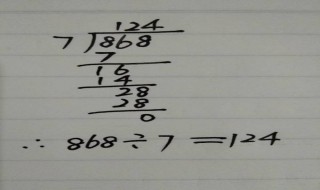 124
7)868
7
16
14
28
28
0
∴ 868÷7=124